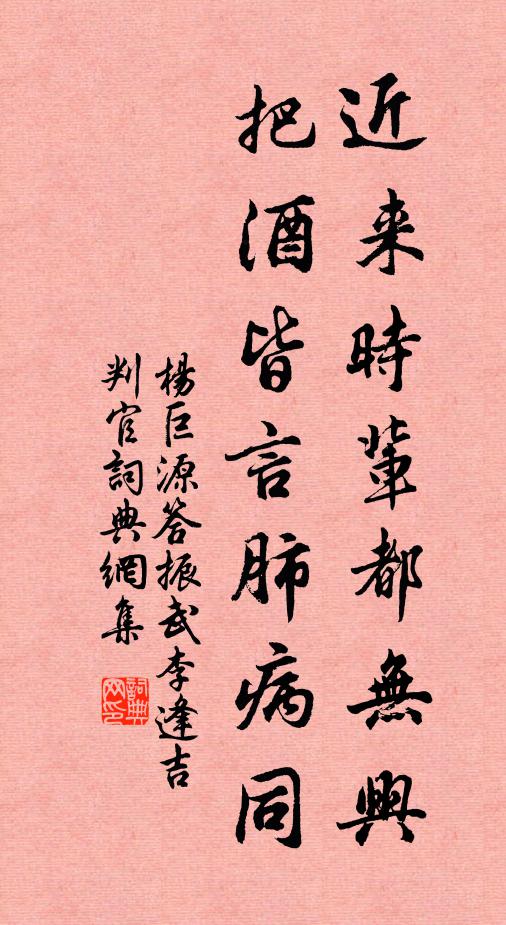 近来時輩都無興
把酒皆言肺病同
楊巨源答振武李逢吉
判官詞典網集
詞典
网印